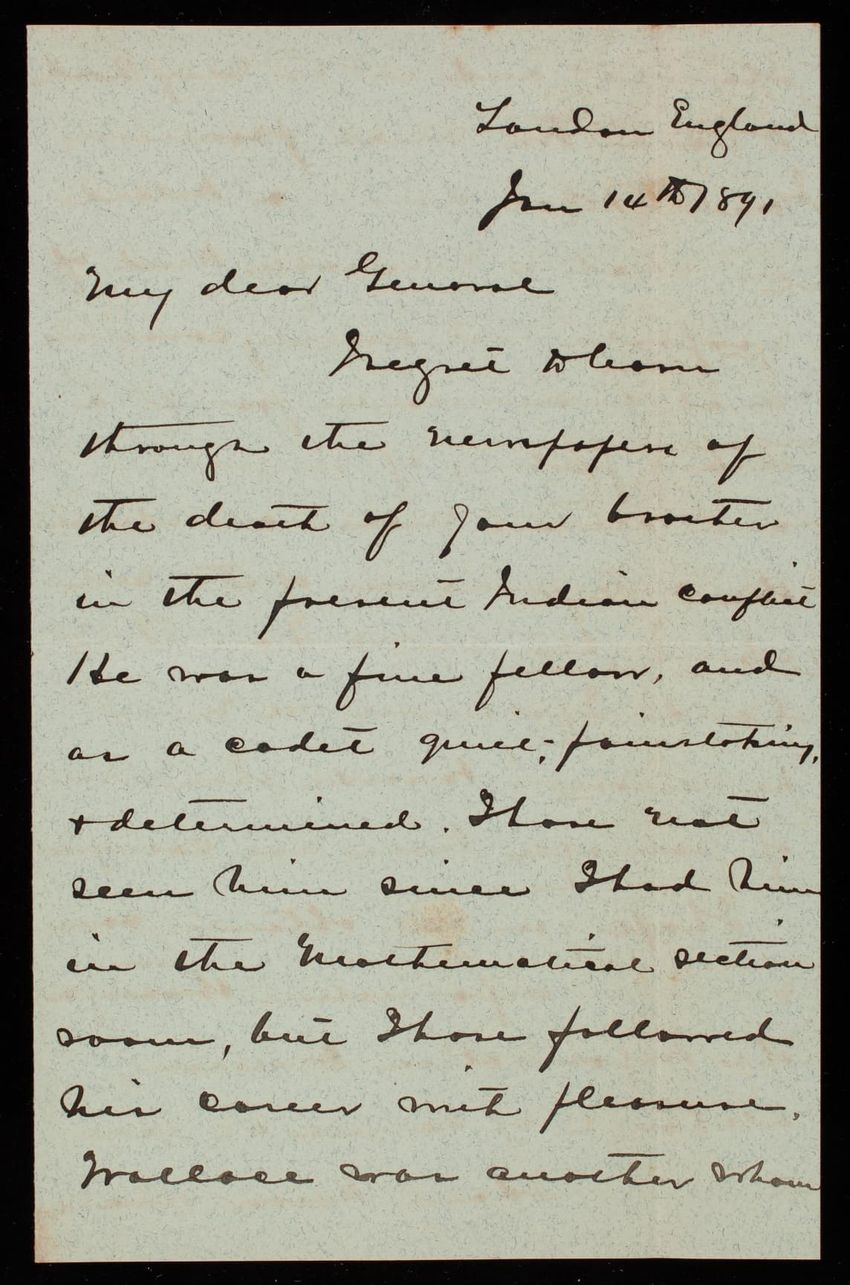 London England
Jan 14th 1891
My dear General
I regret to learn
through the newspapers of
the death of your brother
in the present Indian conflict
He was a fine fellow, and
as a cadet quiet, painstaking,
+ determined. I have not
seen him since I had him
in the Mathematical section
room, but I have followed
his career with pleasure.
Wallace was another whom